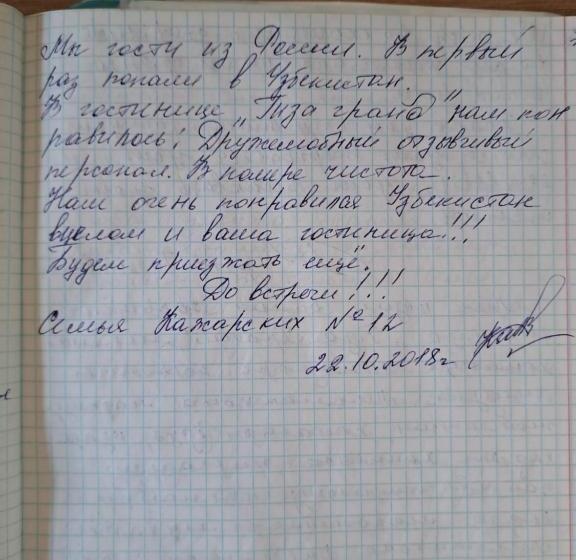 Мы гости из России. В первый
раз попали в Узбекистан.
В гостинице "Гиза гранд" нам пон
равилось! Дружелюбный отзывчивый
персонал. В номере чистота.
Нам очень понравился Узбекистан
вцелом и ваша гостиница!!!
Будем приезжать ещё.
До встречи!!!
Семья Кажарских № 12
22.10.2018г